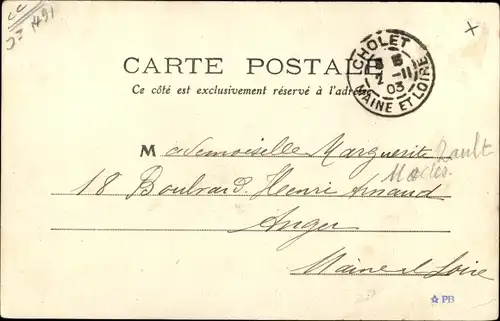 CARTE POSTALE
Ce côté est exclusivement réservé à l'adresse
CHOLET
2 -11
03
MAINE ET LOIRE
Mademoiselle Marguerite
18 Boulvard. Henri Arnaud
Anger
Maine et Loire
PB